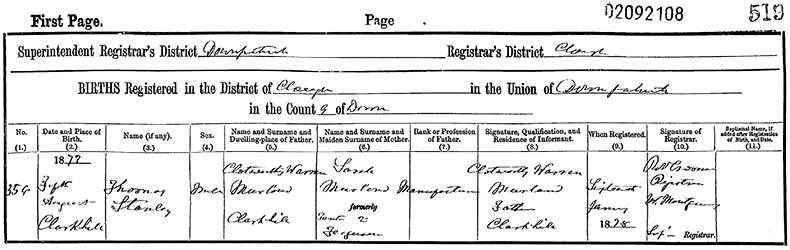 First Page. Page 02092108 519
Superintendent Registrar's District Downpatrick Registrar's District Clough
BIRTHS Registered in the District of Clough in the Union of Downpatrick
in the County of Down
No. Date and Place of Birth. Name (if any). Sex. Name and Surname and Dwelling-place of Father. Name and Surname and Maiden Surname of Mother. Rank or Profession of Father. Signature, Qualification, and Residence of Informant. When Registered. Signature of Registrar. Baptismal Name, if added after Registration of Birth, and Date.
(1.) (2.) (3.) (4.) (5.) (6.) (7.) (8.) (9.) (10.) (11.)
1877
Clotworthy Warren Sarah Clotworthy Warren
35 Fifth Thomas Male Murland Murland Manufacturer Murland
August Stanley formerly Father
Clarkhill Clarkhill Ferguson Clarkhill 1878 Registrar.